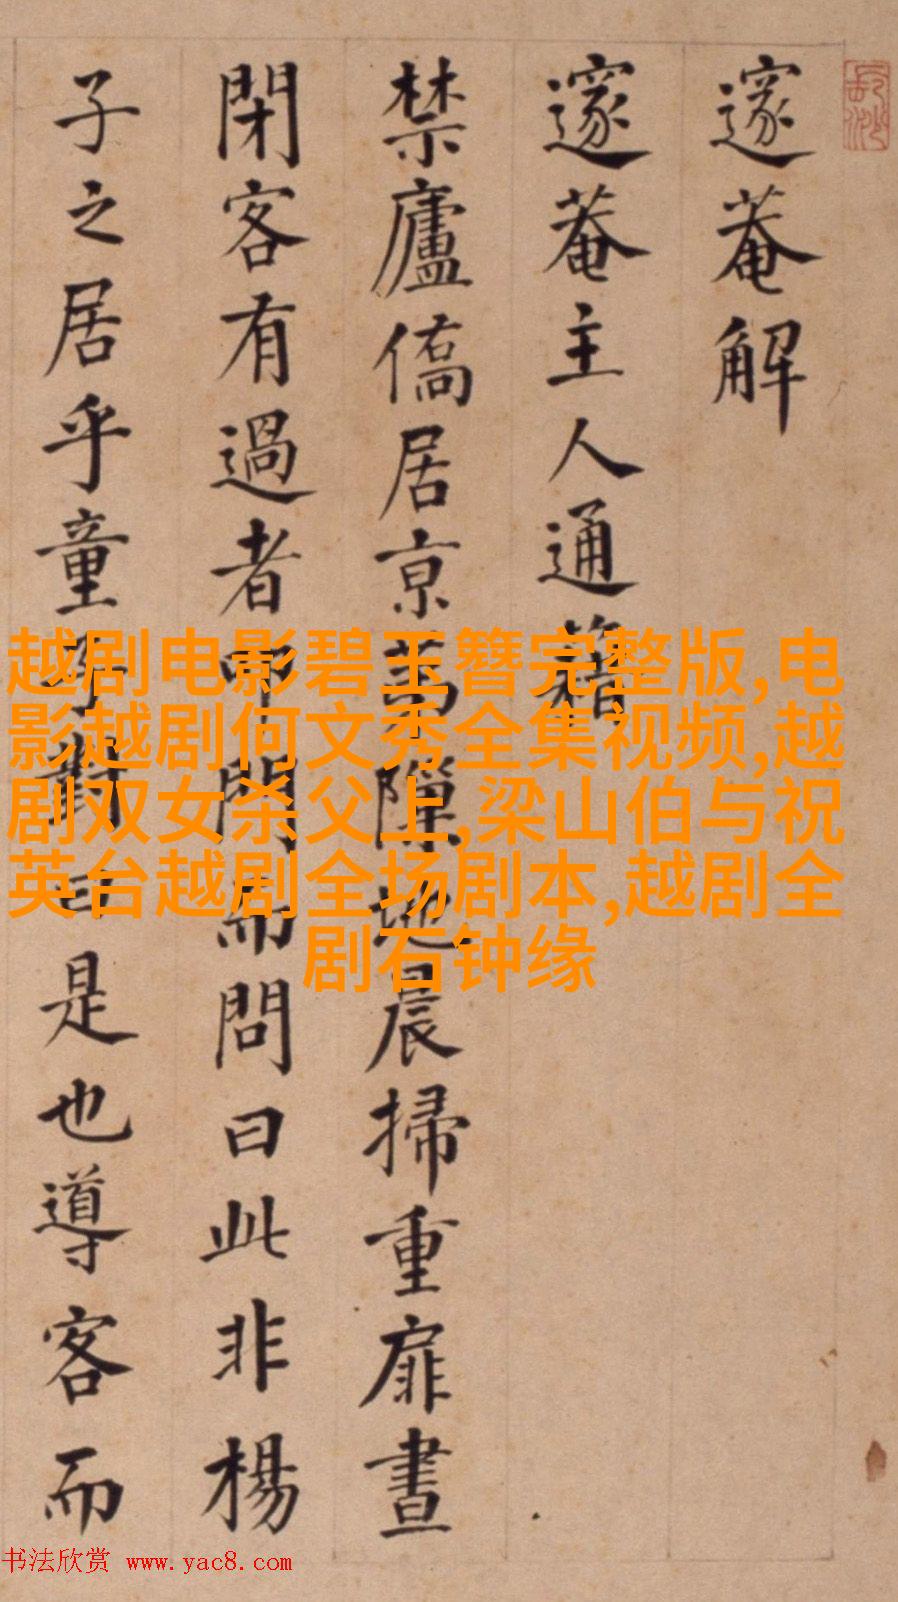 邃菴解
邃菴主人通籍
禁廬僑居京第隟地晨掃重扉晝
閉客有過者叩門而問曰此非楊
子之居乎童子對曰是也導客而
越剧电影碧玉簪完整版,电
影越剧何文秀全集视频,越
剧双女杀父上,梁山伯与祝
英台越剧全场剧本,越剧全
剧石钟缘
书法欣赏 www.yac8.com